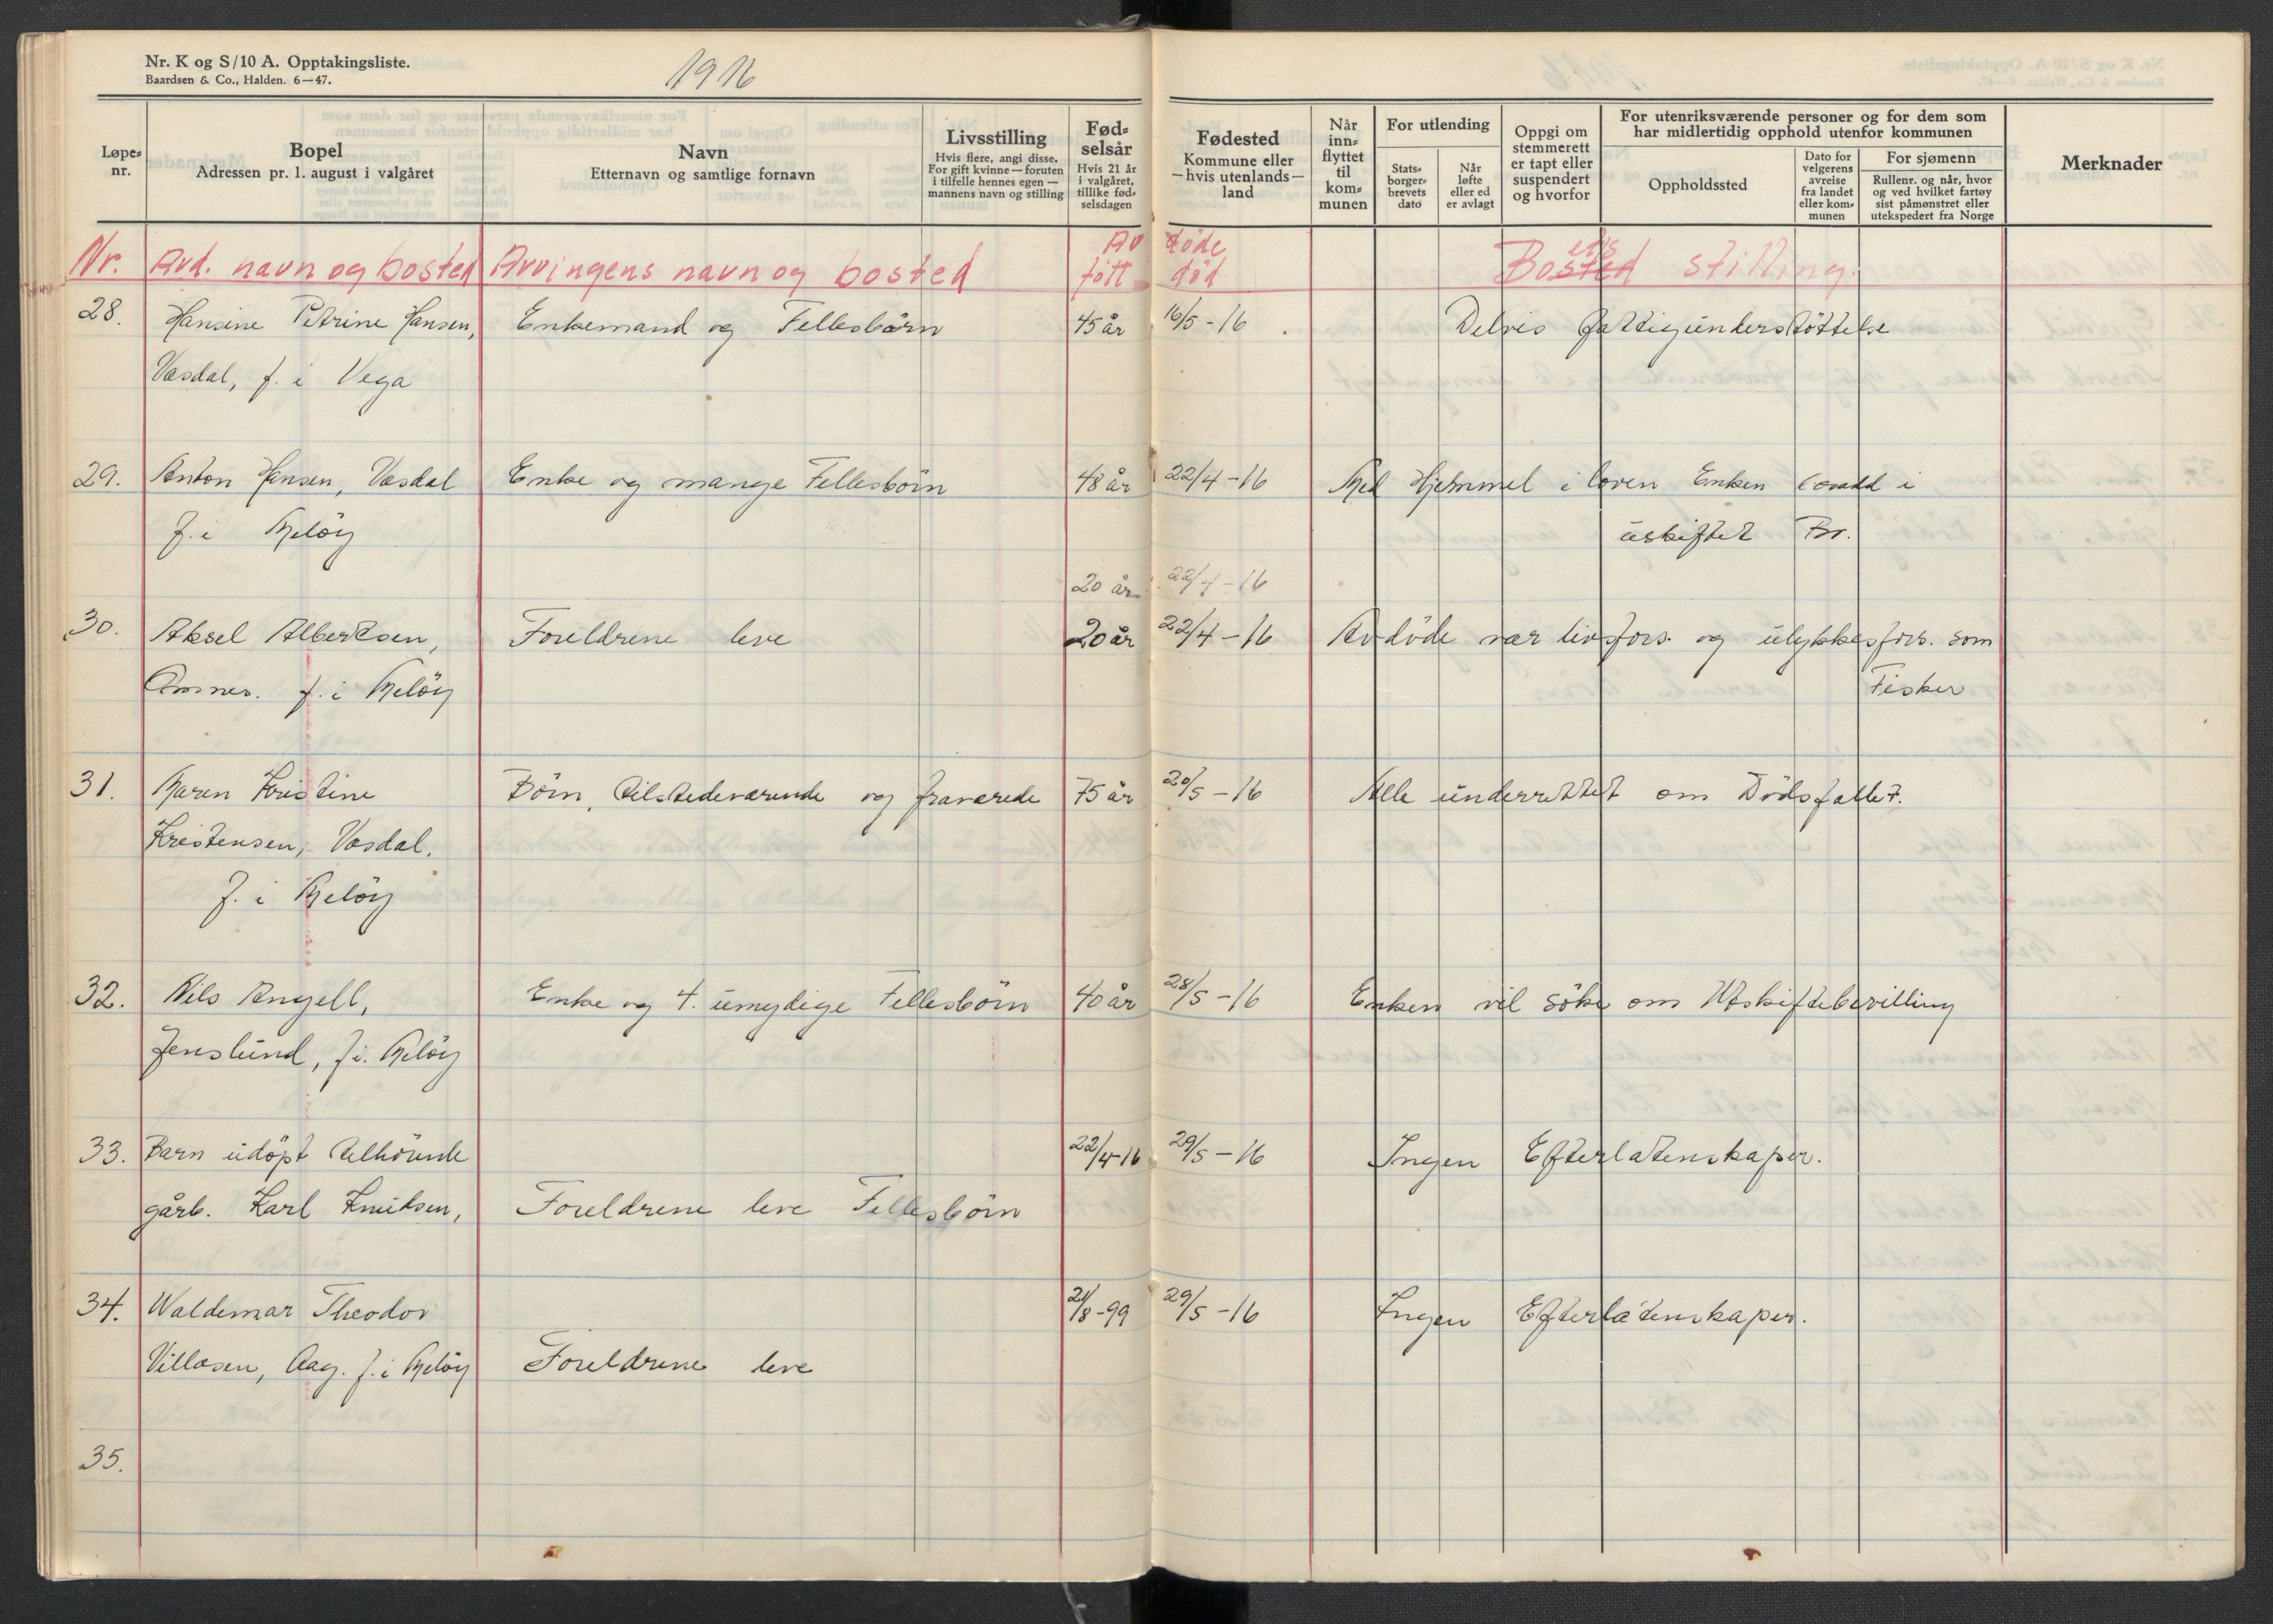 Nr. K og S/10 A. Opptakingsliste.
Baardsen & Co., Halden. 6—47.
1916
Løpe-nr.
Bopel
Adressen pr. 1. august i valgåret
Navn
Etternavn og samtlige fornavn
Livsstilling
Hvis flere, angi disse.
For gift kvinne — foruten
i tilfelle hennes egen —
mannens navn og stilling
Fød-
selsår
Hvis 21 år
i valgåret,
tillike fød-
selsdagen
Fødested
Kommune eller
— hvis utenlands —
land
Når
inn-
flyttet
til
kom-
munen
For utlending
Stats-
borger-
brevets
dato
Når
løfte
eller ed
er avlagt
Oppgi om
stemmerett
er tapt eller
suspendert
og hvorfor
For utenriksværende personer og for dem som
har midlertidig opphold utenfor kommunen
Oppholdssted
Dato for
velgerens
avreise
fra landet
eller kom-
munen
For sjømenn
Rullenr. og når, hvor
og ved hvilket fartøy
sist påmønstret eller
utekspedert fra Norge
Merknader
Nr. Avd. navn og bosted Arvingens navn og bosted Av døde født død Bo ets stilling.
28. Hansine Petrine Hansen, Enkemand og Fellesbörn 45 år 16/5-16. Delvis fattigunderstöttelse
Vasdal, f. i Vega
29. Anton Hansen, Vasdal Enke og mange Fellesbörn 48 år 22/4-16 Med Hjemmel i loven Enken i
f. i Melöy uskiftet Bo.
20 år 22/4-16
30. Aksel Albertsen, Foreldrene leve 20 år 22/4-16 Avdöde var livsfors. og ulykkesfors. som
Amnes. f. i Melöy Fisker
31. Maren Kristine Börn, tilstedeværende og fraværede 75 år 20/5-16 Alle underrettet om Dödsfallet.
Kristensen, Vasdal.
f. i Melöy
32. Nils Angell, Enke og 4. umydige Fellesbörn 40 år 28/5-16 Enken vil söke om Uskiftebevilling
Jenslund, f i. Melöy
33. Barn udöpt tilhörende 22/4-16 29/5-16 Ingen Efterlatenskaper.
gårb. Karl Knutsen, Foreldrene leve Fellesbörn
34. Waldemar Theodor 21/8-99 29/5-16 Ingen Efterlatenskaper.
Villasen, Aag. f. i Melöy Foreldrene leve
35.